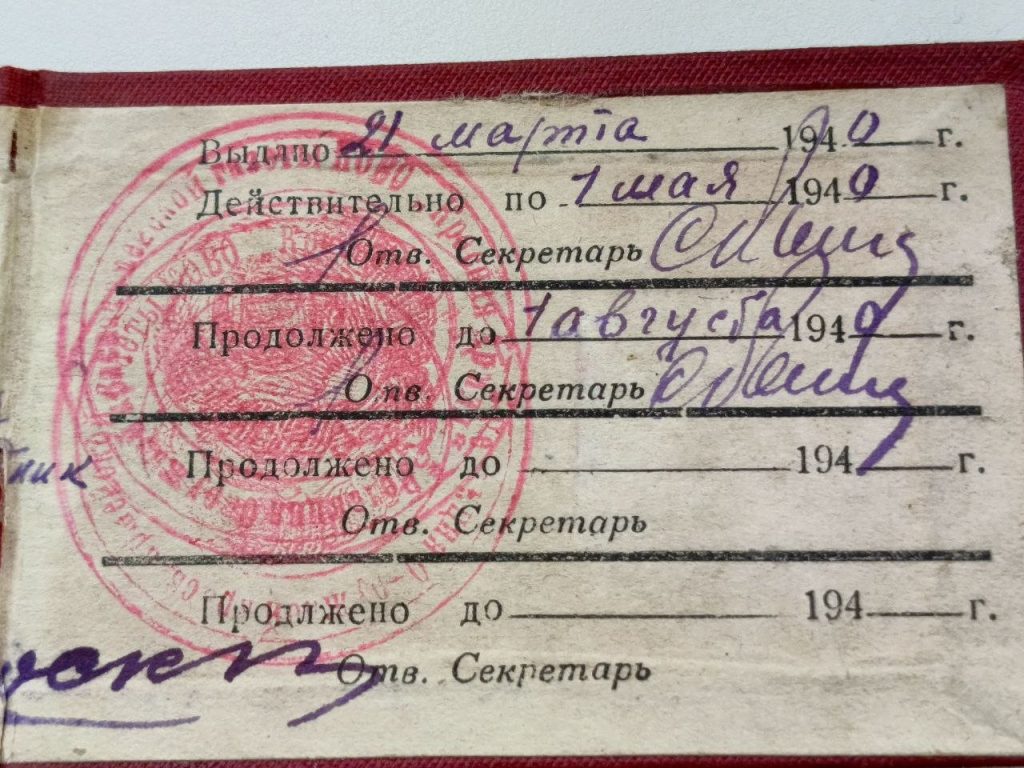 Выдано 21 марта 1940 г.
Действительно по 1 мая 1940 г.
Отв. Секретарь
Продолжено до 1 августа 1940 г.
Отв. Секретарь
Продолжено до 194 г.
Отв. Секретарь
Продлжено до 194 г.
Отв. Секретарь